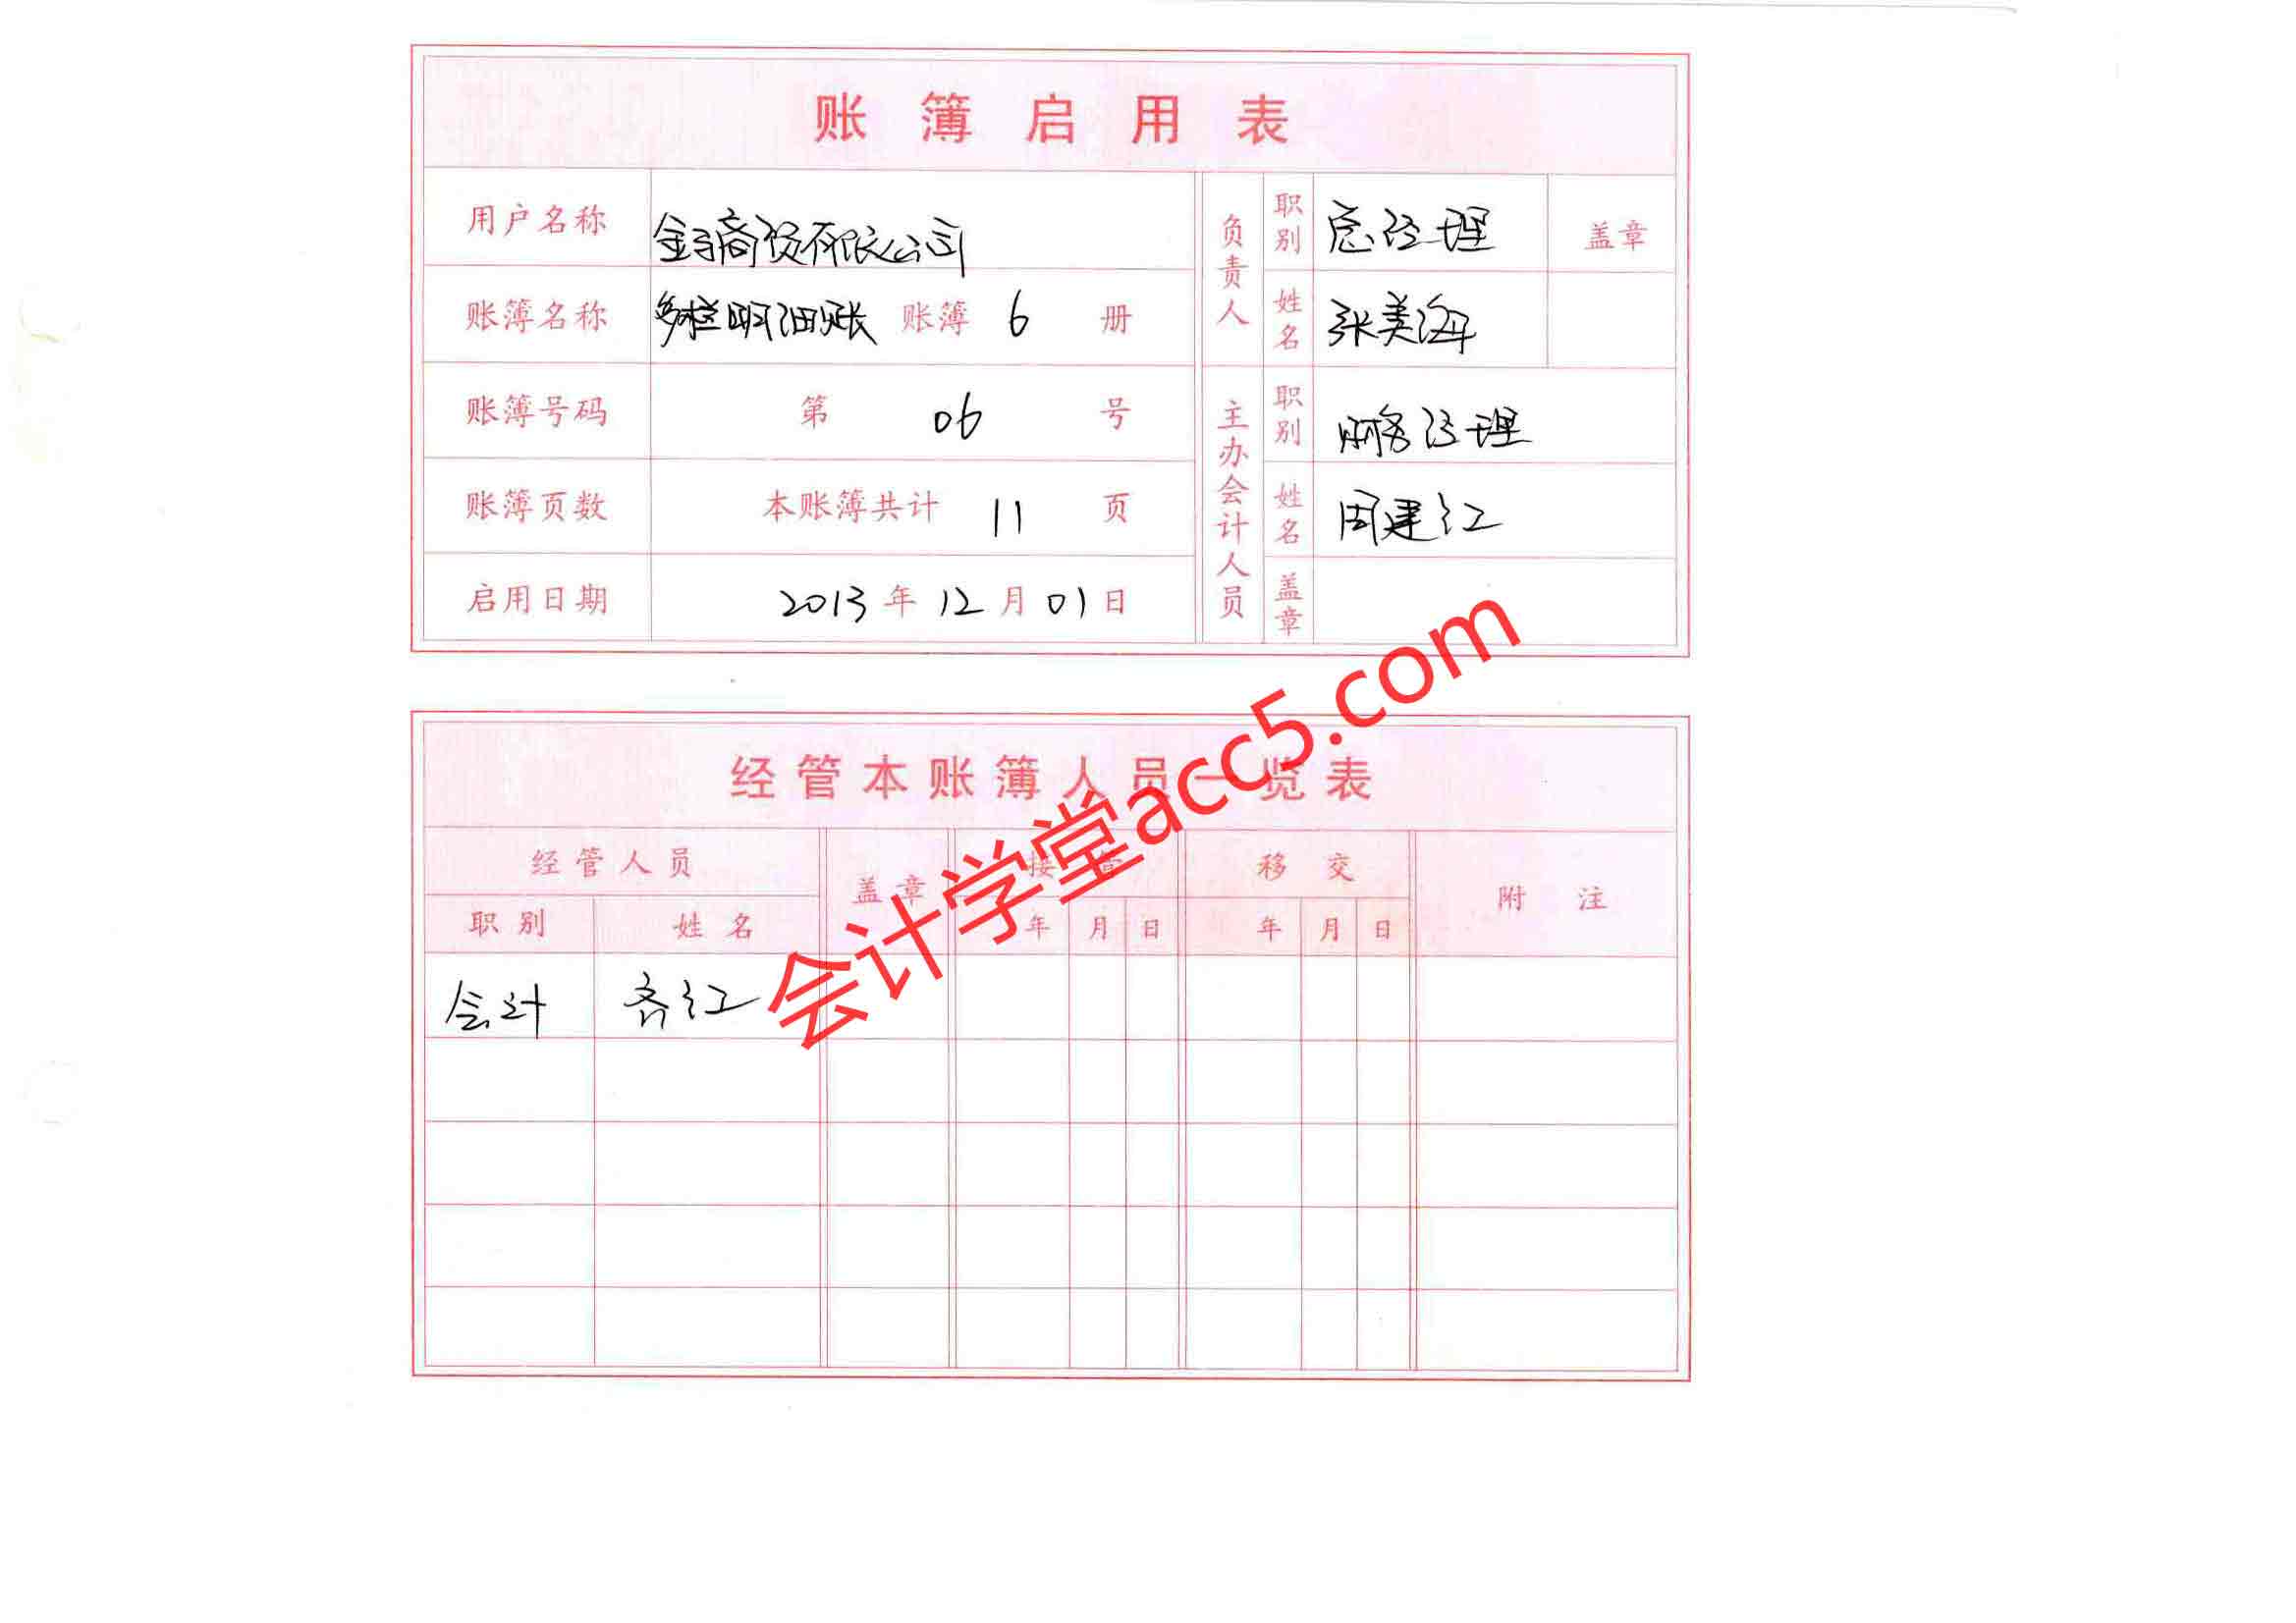 账簿启用表
用户名称 金马商贸有限公司
负责人 职别 总经理 盖章
账簿名称 多栏明细账 账簿 6 册
姓名 张美海
账簿号码 第 06 号
主办会计人员 职别 财务经理
账簿页数 本账簿共计 11 页
姓名 周建江
启用日期 2013 年 12 月 01 日
盖章
会计学堂acc5.com
经管本账簿人员一览表
经管人员 盖章 接管 移交 附注
职别 姓名 年 月 日 年 月 日
会计 齐红